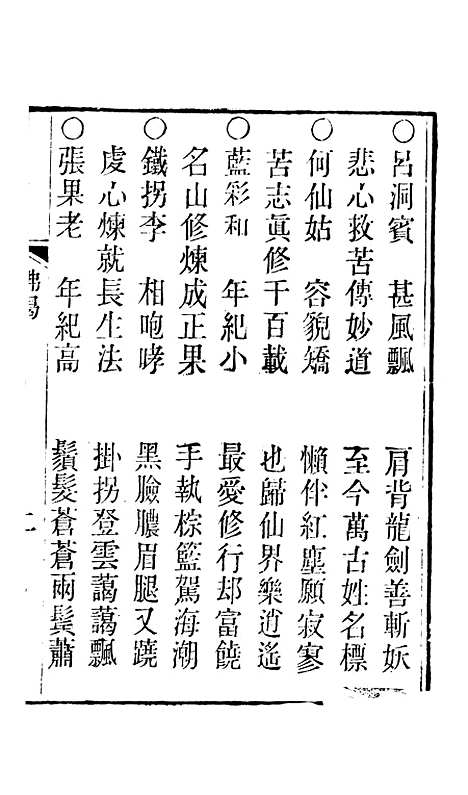 ○呂洞賓　甚風飄　肩背龍劍善斬妖
悲心救苦傳妙道　至今萬古姓名標
○何仙姑　容貌嬌　懶伴紅塵願寂寥
苦志眞修千百載　也歸仙界樂逍遙
○藍彩和　年紀小　最愛修行却富饒
名山修煉成正果　手執棕籃駕海潮
○鐵拐李　相咆哮　黑臉膿眉腿又蹺
虔心煉就長生法　掛拐登雲藹藹飄
○張果老　年紀高　鬚髮蒼蒼兩鬓蕭